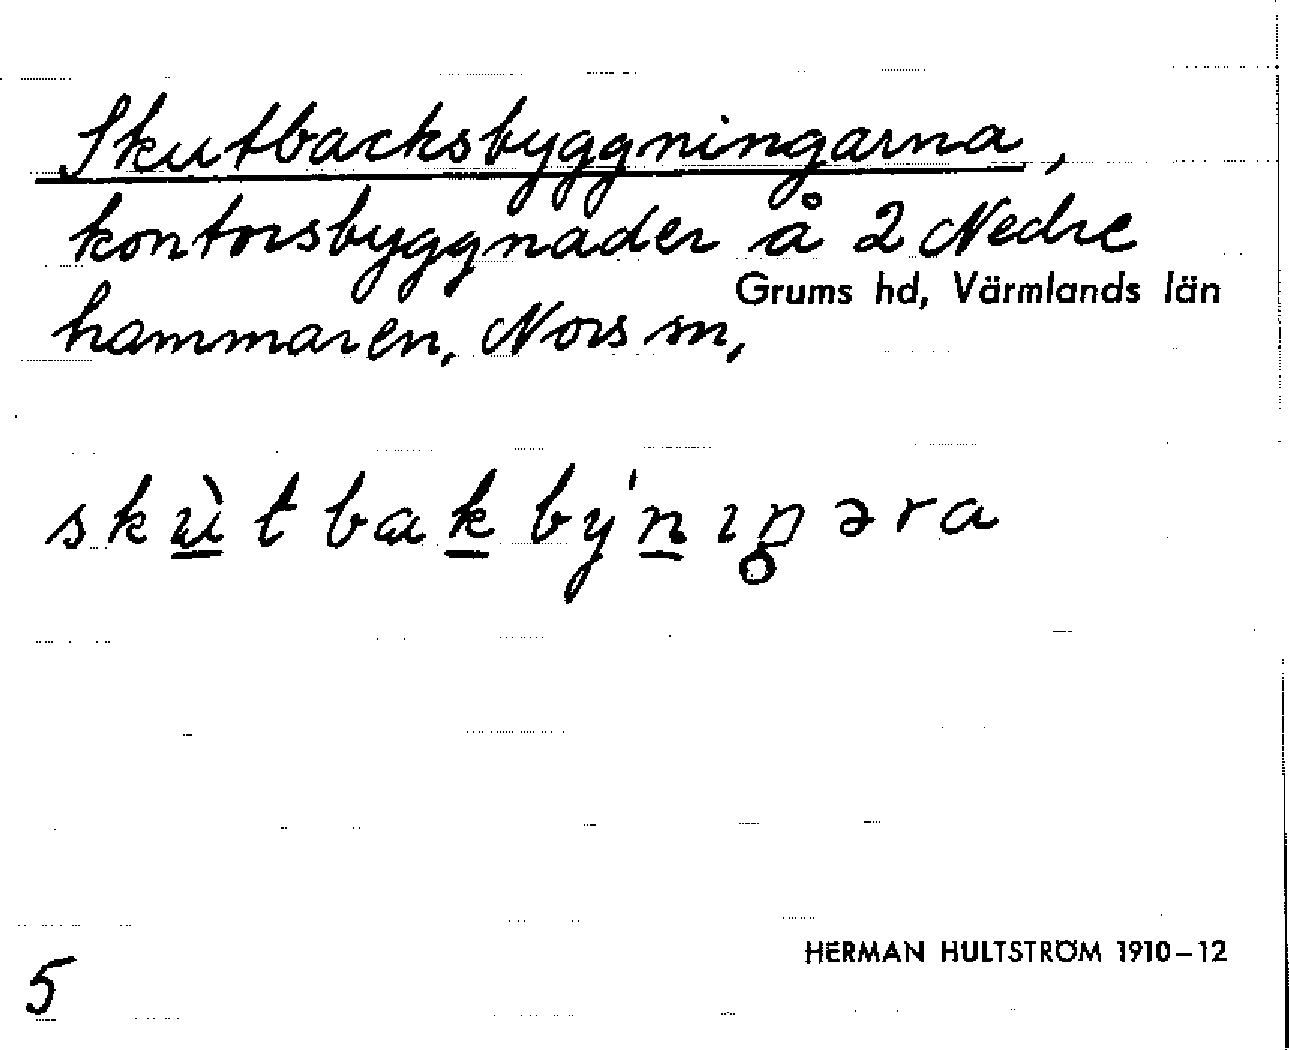 Skutbacksbyggningarna,
kontorsbyggnader å 2 Nedre
Grums hd, Värmlands län
hammaren, Nors sn,
skùtbakbý'nıŋəra
5
HERMAN HULTSTRÖM 1910–12